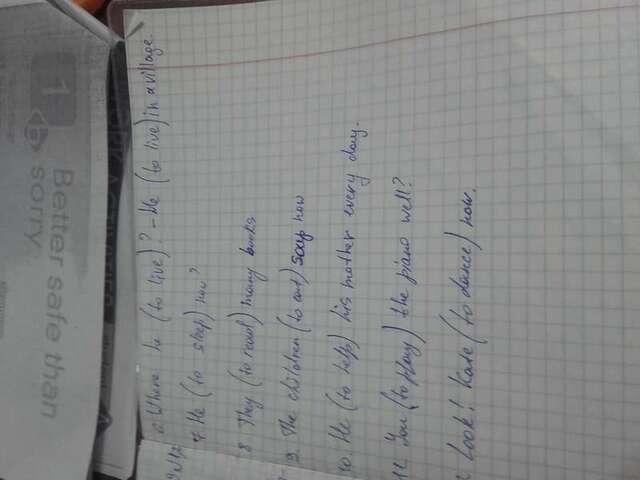 Better safe than
sorry
1
6. Where he (to live)? – He (to live) in a village.
7. He (to sleep) now?
8 They (to read) many books
9. The children (to eat) soup now
10. He (to help) his mother every day.
11. You (to play) the piano well?
Look! Kate (to dance) now.